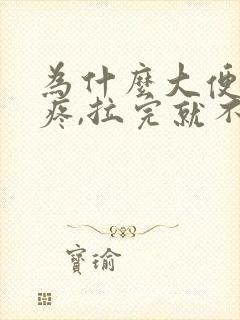 為什麼大便
疼,拉完就不
寶瑜